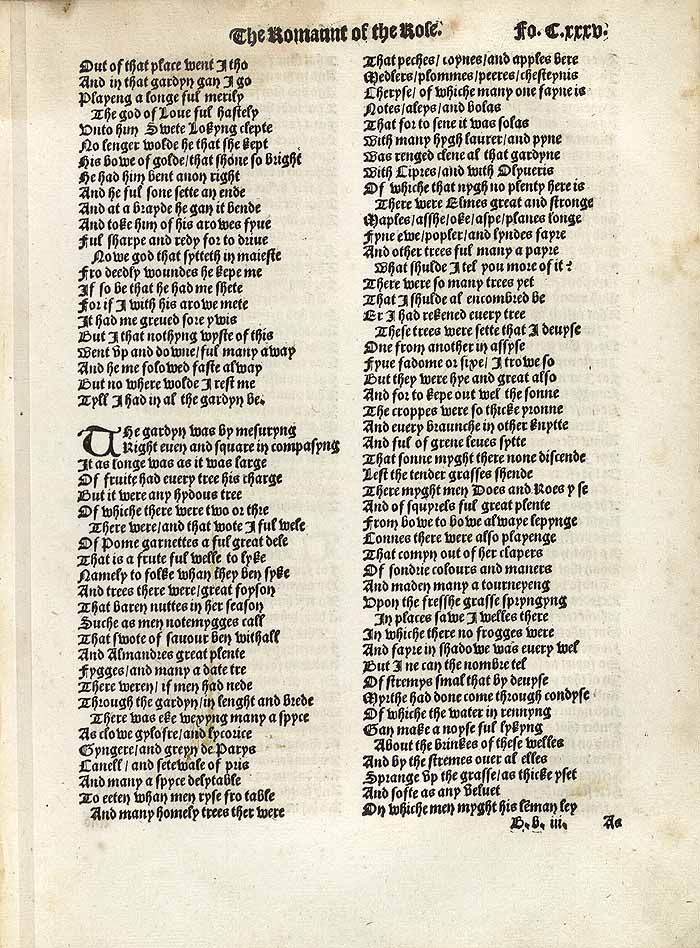 The Romaunt of the Rose.
Fo. C.xxxv.
Out of that place went I tho
And in that gardyn gan I go
Playeng a longe ful merily
The god of Loue ful hastely
Vnto him Swete Lokyng clepte
No lenger wolde he that she kept
His bowe of golde/that shone so bright
He had him bent anon right
And he ful sone sette an ende
And at a brayde he gan it bende
And toke him of his arowes fyue
Ful sharpe and redy for to driue
Nowe god that sytteth in maieste
Fro deedly woundes he kepe me
If so be that he had me shete
For if I with his arowe mete
It had me greued sore ywis
But I that nothyng wyste of this
Went vp and downe/ful many a way
And he me folowed faste alway
But no where wolde I rest me
Tyll I had in al the gardyn be.
The gardyn was by mesuryng
Right euen and square in compasyng
It as longe was as it was large
Of fruite had euery tree his charge
But it were any hydous tree
Of whiche there were two or thre
There were/and that wote I ful wele
Of Pome garnettes a ful great dele
That is a frute ful welle to lyke
Namely to folke whan they ben syke
And trees there were/great foyson
That baren nuttes in her season
Suche as men notemygges call
That swote of sauour ben withall
And Almandres great plente
Fygges/and many a date tre
There weren/if men had nede
Through the gardyn/in lenght and brede
There was eke wexyng many a spyce
As clowe gylofre/and lycorice
Gyngere/and greyn de Parys
Canell/and setewale of pris
And many a spyce delytable
To eeten whan men ryse fro table
And many homely trees ther were
That peches/coynes/and apples bere
Medlers/plommes/peeres/chesteynis
Cheryse/of whiche many one fayne is
Notes/aleys/and bolas
That for to sene it was solas
With many hygh laurer/and pyne
Was renged clene al that gardyne
With Cipres/and with Olyueris
Of whiche that nygh no plenty here is
There were Elmes great and stronge
Maples/asshe/oke/aspe/planes longe
Fyne ewe/popler/and lyndes fayre
And other trees ful many a payre
What shulde I tel you more of it?
There were so many trees yet
That I shulde al encombred be
Er I had rekened euery tree
These trees were sette that I deuyse
One from another in assyse
Fyue fadome or sixe/I trowe so
But they were hye and great also
And for to kepe out wel the sonne
The croppes were so thicke yronne
And euery braunche in other knytte
And ful of grene leues sytte
That sonne myght there none discende
Lest the tender grasses shende
There myght men Does and Roes yse
And of squyrels ful great plente
From bowe to bowe alwaye lepynge
Connes there were also playenge
That comyn out of her clapers
Of sondrie colours and maners
And maden many a tourneyeng
Vpon the fresshe grasse spryngyng
In places sawe I welles there
In whiche there no frogges were
And fayre in shadowe was euery wel
But I ne can the nombre tel
Of stremys smal that by deuyse
Myrthe had done come through condyse
Of whiche the water in rennyng
Gan make a noyse ful lykyng
About the brinkes of these welles
And by the stremes ouer al elles
Sprange vp the grasse/as thicke yset
And softe as any veluet
On whiche men myght his leman ley
B.b.iii.
As